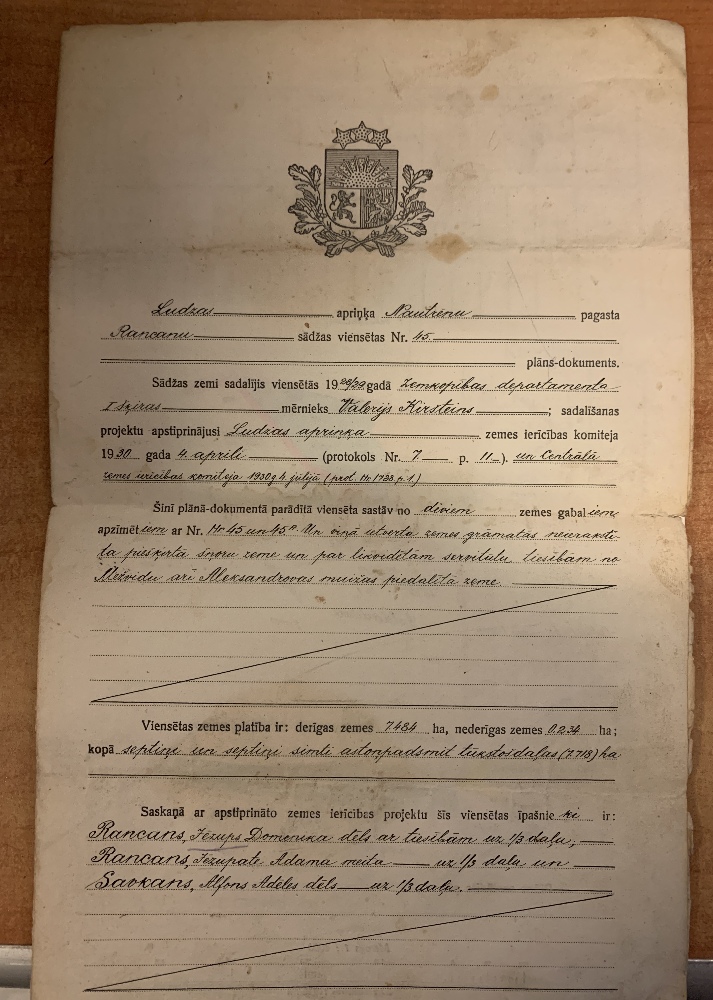 Ludzas apriņķa Nautrēnu pagasta
Rancanu sādžas viensētas Nr. 45
plāns-dokuments.
Sādžas zemi sadalījis viensētās 1928/29 gadā Zemkopības departamenta
I šķiras mērnieks Valerijs Kirsteins; sadalīšanas
projektu apstiprinājusi Ludzas apriņķa zemes ierīcības komiteja
1930 gada 4. aprīlī (protokols Nr. 7 p. 11). un Centrālā
zemes ierīcības komiteja 1930 g. 4. jūlijā (prot. Nr. 1723, p. 1)
Šinī plānā-dokumentā parādītā viensēta sastāv no diviem zemes gabaliem
apzīmētiem ar Nr. Nr 45 un 45ª. Un viņā ietverta zemes grāmatās neierakstī-
ta piešķirtā šņoru zeme un par likvidētām servitutu tiesībām no
Mežvidu arī Aleksandrovas muižas piedalītā zeme
Viensētas zemes platība ir: derīgas zemes 7484 ha, nederīgas zemes 0.234 ha;
kopā septiņi un septiņi simti astoņpadsmit tūkstošdaļas (7.718) ha
Saskaņā ar apstiprināto zemes ierīcības projektu šīs viensētas īpašnieki ir:
Rancans, Jezups Domenika dēls ar tiesībām uz 1/3 daļu;
Rancans, Jezupate Adama meita uz 1/3 daļu un
Savkans, Alfons Adeles dēls uz 1/3 daļu.